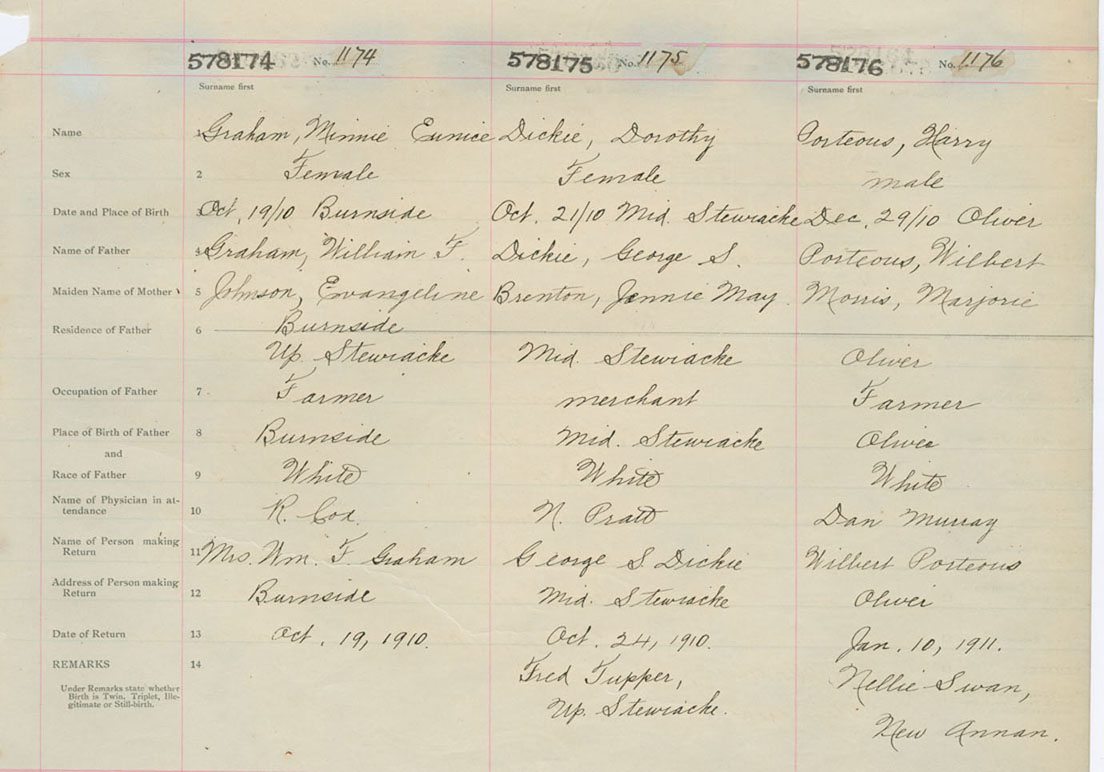 578174 No. 1174 578175 No. 1175 578176 No. 1176
Surname first Surname first Surname first
Name 1 Graham, Minnie Eunice Dickie, Dorothy Porteous, Harry
Sex 2 Female Female male
Date and Place of Birth 3 Oct, 19/10 Burnside Oct. 21/10 Mid. Stewiacke Dec. 29/10 Oliver
Name of Father 4 Graham, William F. Dickie, George S. Porteous, Wilbert
Maiden Name of Mother 5 Johnson, Evangeline Brenton, Jennie May Morris, Marjorie
Residence of Father 6 Burnside
Up. Stewiacke Mid. Stewiacke Oliver
Occupation of Father 7 Farmer merchant Farmer
Place of Birth of Father 8 Burnside Mid. Stewiacke Oliver
and
Race of Father 9 White White White
Name of Physician in at-
tendance 10 R. Cox. N. Pratt Dan Murray
Name of Person making
Return 11 Mrs. Wm. F. Graham George S Dickie Wilbert Porteous
Address of Person making
Return 12 Burnside Mid. Stewiacke Oliver
Date of Return 13 Oct. 19, 1910. Oct. 24, 1910. Jan. 10, 1911.
REMARKS 14 Fred Tupper, Nellie Swan,
Under Remarks state whether
Birth is Twin, Triplet, Ille-
gitimate or Still-birth.
Up. Stewiacke. New Annan.